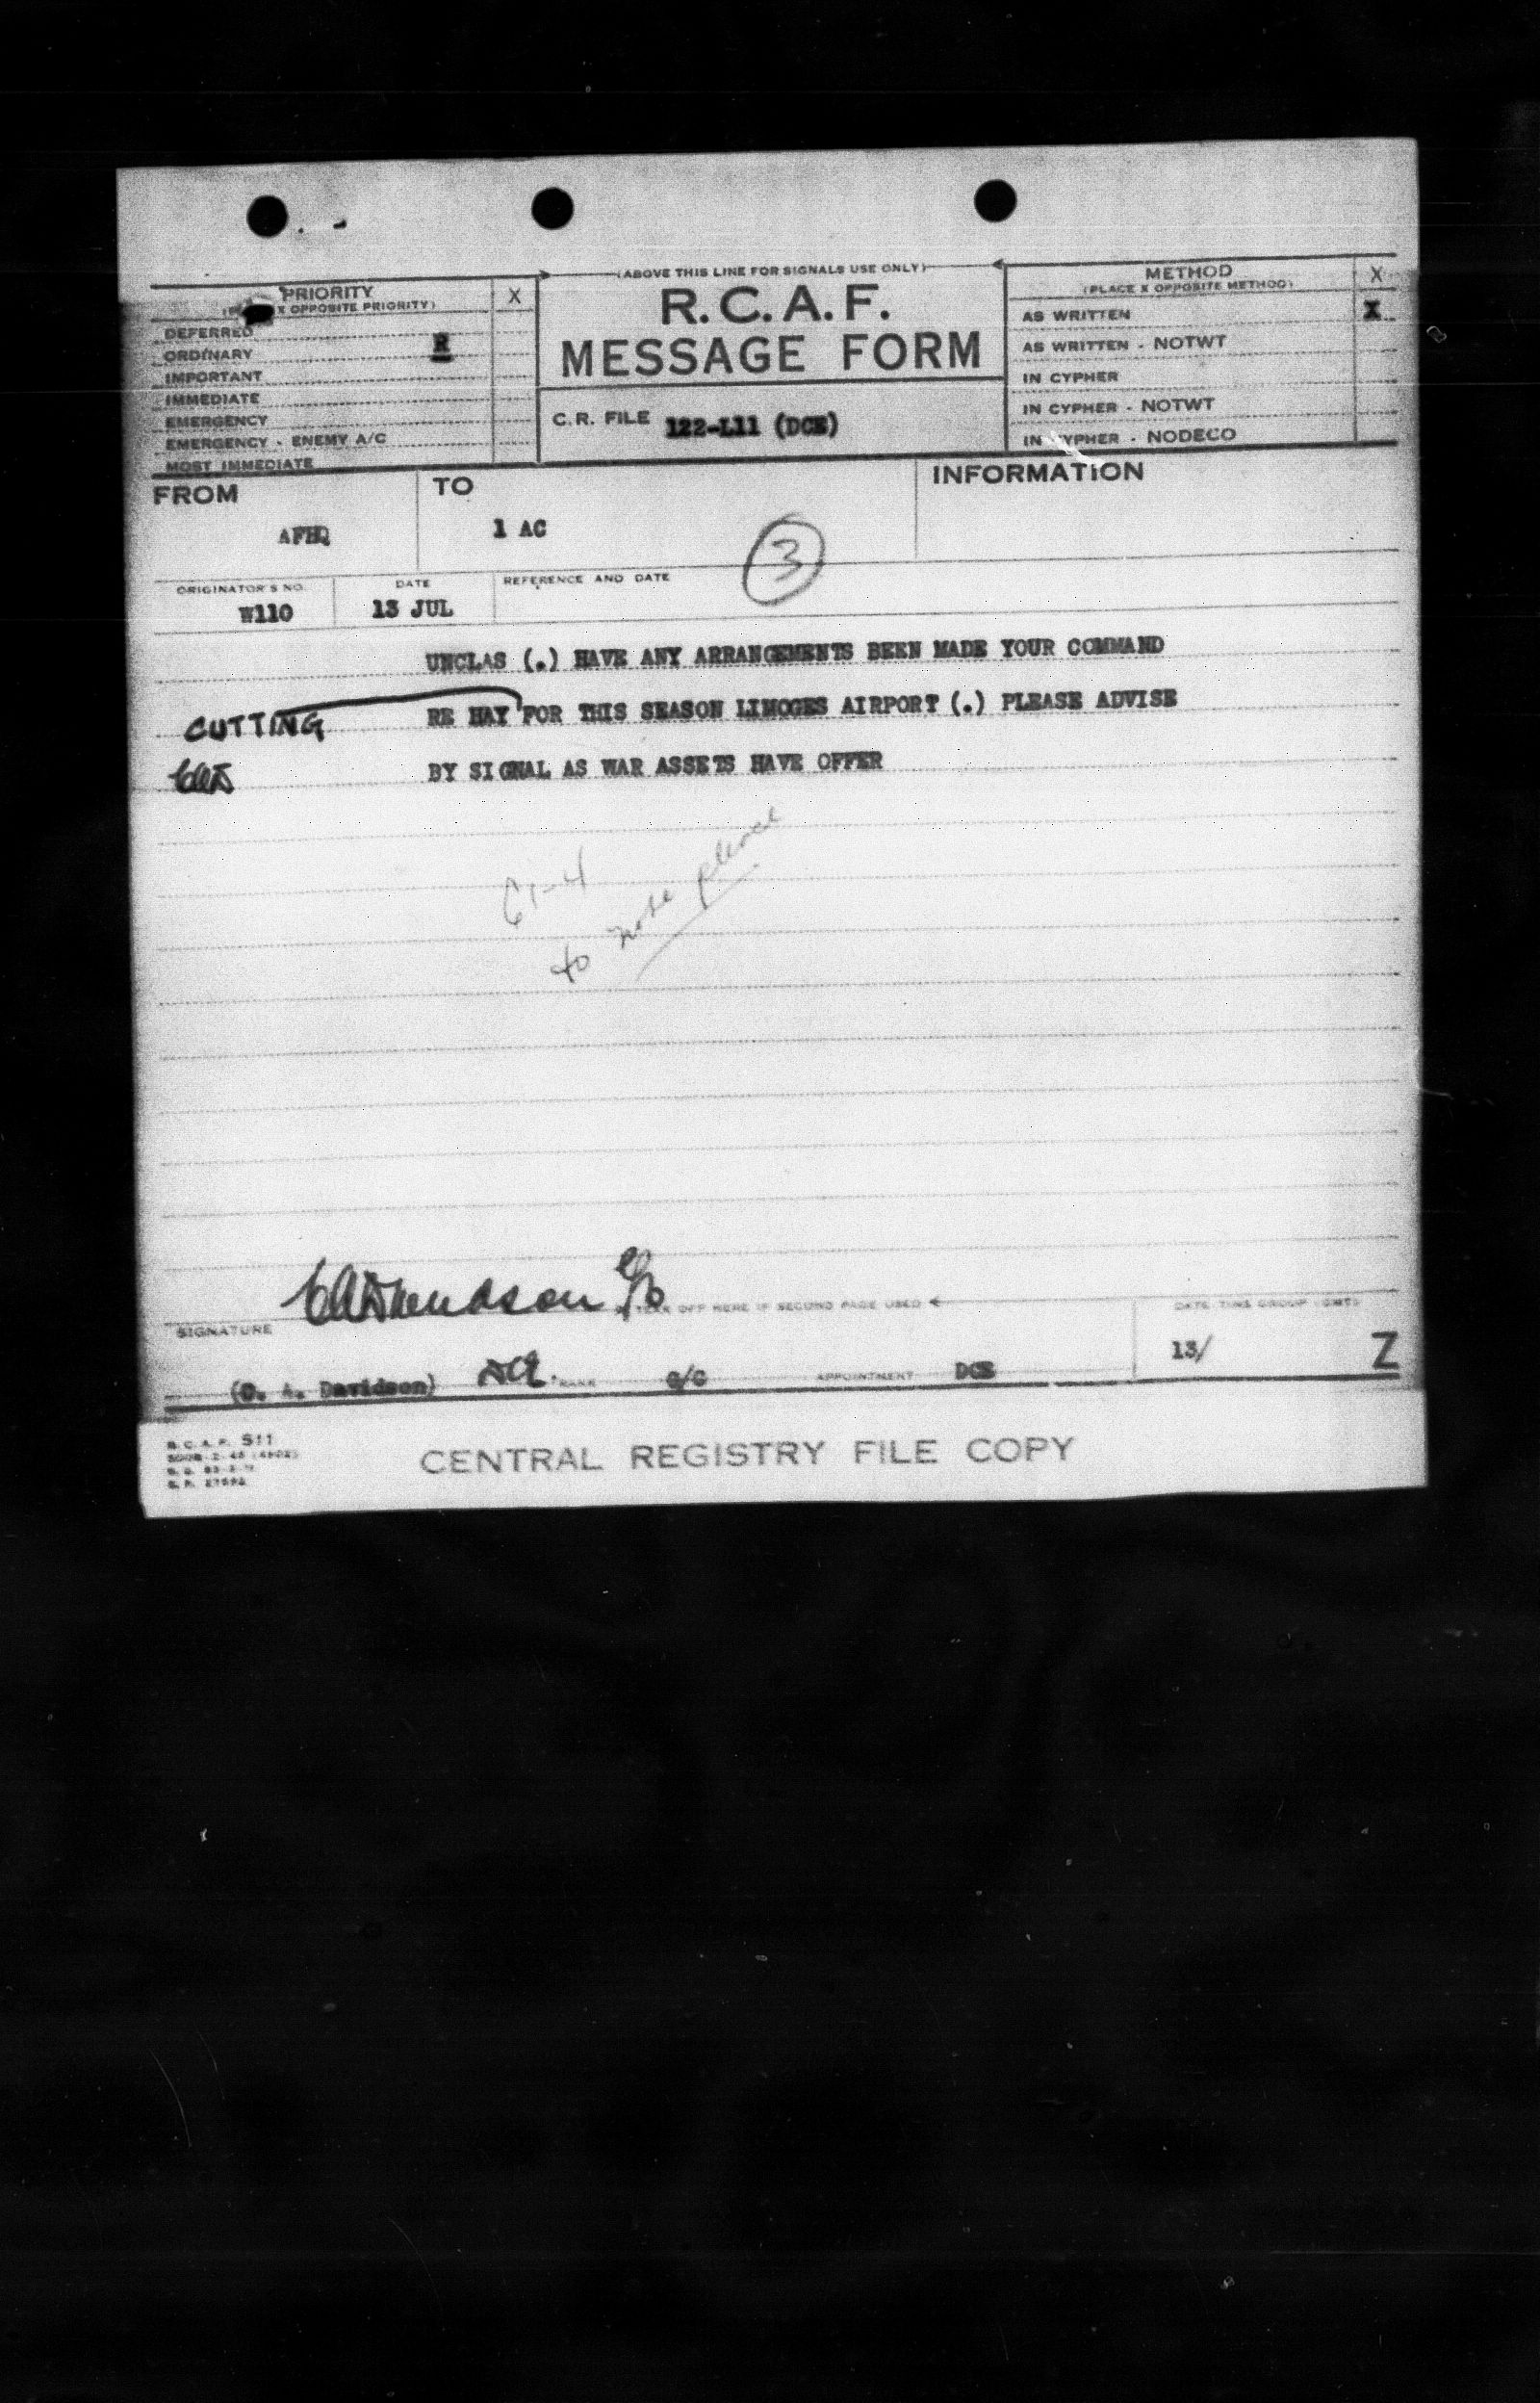 (ABOVE THIS LINE FOR SIGNALS USE ONLY)
PRIORITY X
X OPPOSITE PRIORITY)
DEFERRED
ORDINARY R
IMPORTANT
IMMEDIATE
EMERGENCY
EMERGENCY - ENEMY A/C
MOST IMMEDIATE
R.C.A.F.
MESSAGE FORM
C.R. FILE 122-L11 (DCE)
METHOD X
(PLACE X OPPOSITE METHOD)
AS WRITTEN X
AS WRITTEN - NOTWT
IN CYPHER
IN CYPHER - NOTWT
IN CYPHER - NODECO
FROM
AFHQ
TO
1 AC
3
INFORMATION
ORIGINATOR'S NO.
W110
DATE
13 JUL
REFERENCE AND DATE
UNCLAS (.) HAVE ANY ARRANGEMENTS BEEN MADE YOUR COMMAND
CUTTING
RE HAY FOR THIS SEASON LIMOGES AIRPORT (.) PLEASE ADVISE
BY SIGNAL AS WAR ASSETS HAVE OFFER
to note please
OFF HERE IF SECOND PAGE USED
SIGNATURE
DATE TIME GROUP (GMT)
13/ Z
(O. A. Davidson) RANK G/C APPOINTMENT DCE
R.C.A.F. S11
CENTRAL REGISTRY FILE COPY